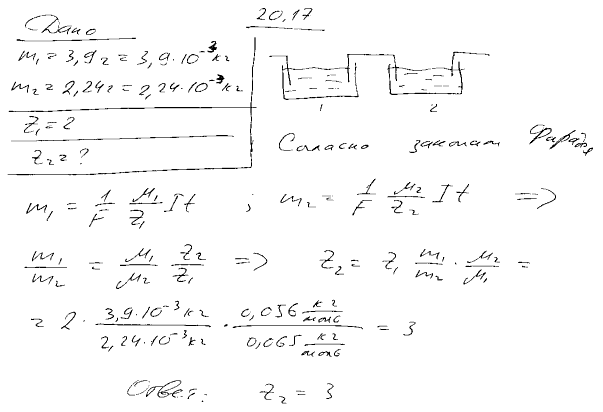 20.17
Дано
m₁ = 3,9 г = 3,9·10⁻³ кг
m₂ = 2,24 г = 2,24·10⁻³ кг
Z₁ = 2
Z₂ = ?
1 2
Согласно законам Фарадея
m₁ = 1/F μ₁/Z₁ It ; m₂ = 1/F μ₂/Z₂ It =>
m₁/m₂ = μ₁/μ₂ Z₂/Z₁ => Z₂ = Z₁ m₁/m₂ · μ₂/μ₁ =
= 2 · 3,9·10⁻³ кг / 2,24·10⁻³ кг · 0,056 кг/моль / 0,065 кг/моль = 3
Ответ: Z₂ = 3